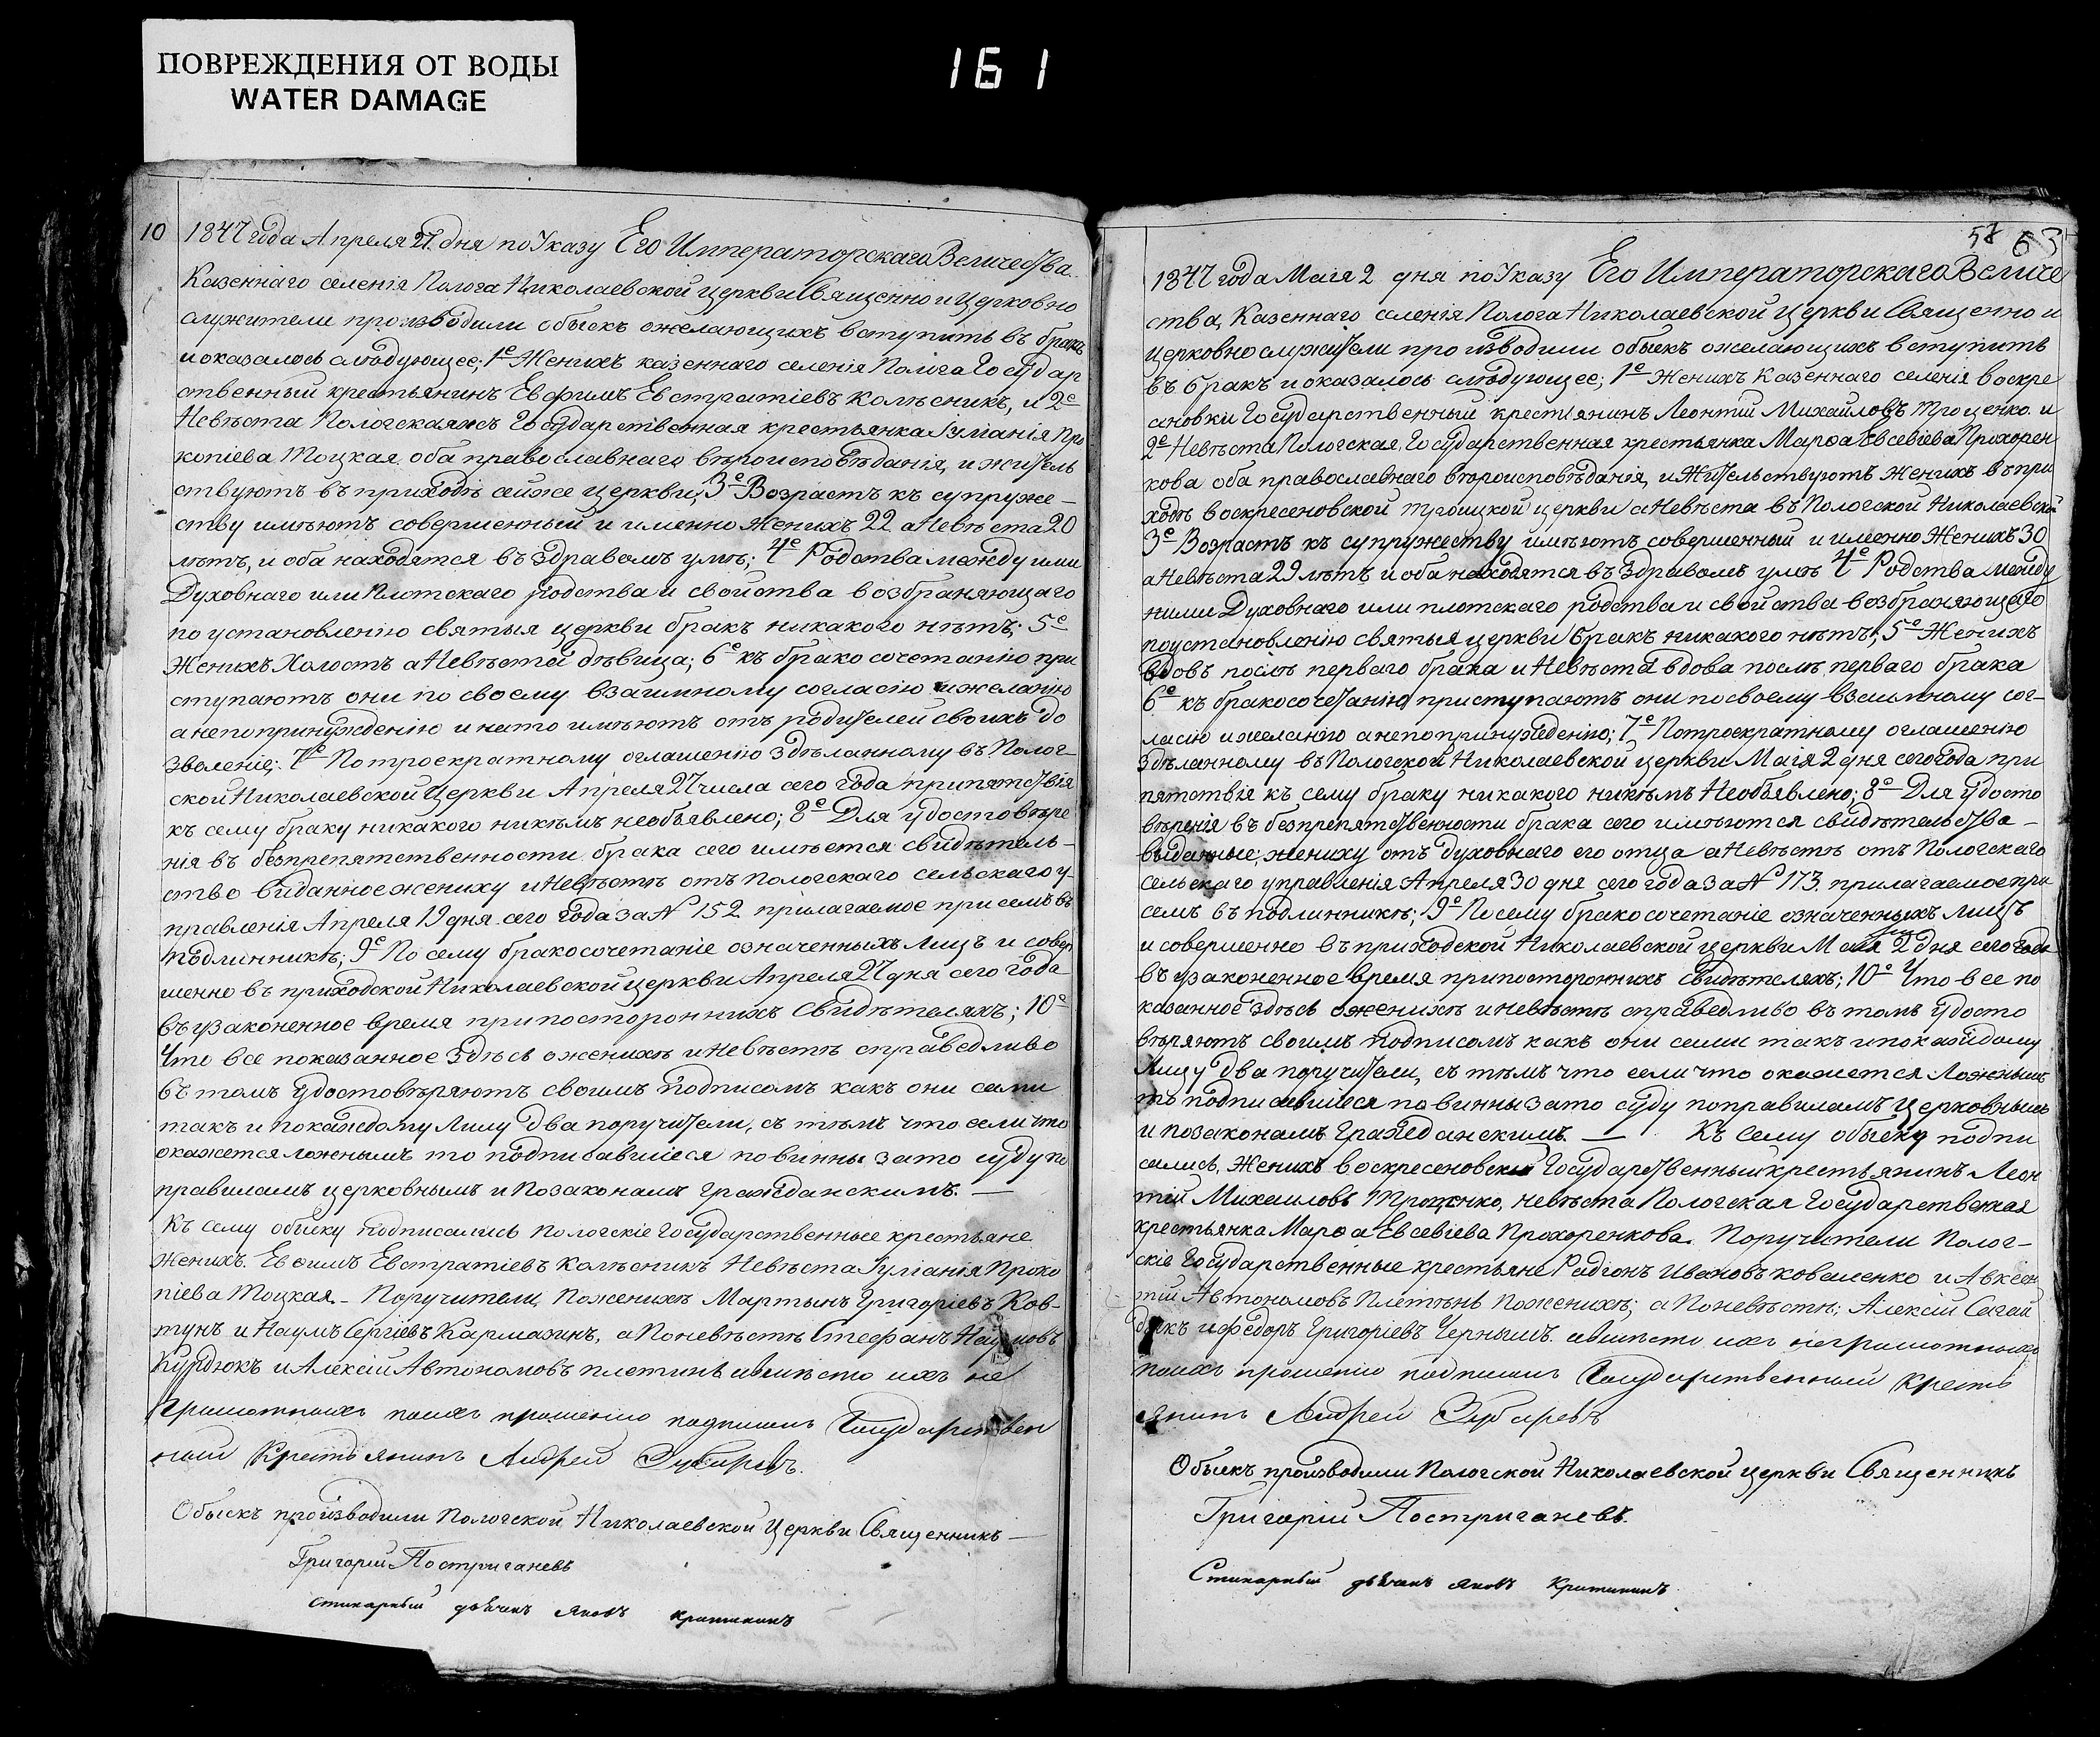 ПОВРЕЖДЕНИЯ ОТ ВОДЫ
WATER DAMAGE
161
10
1847 года Апреля 27. дня по Указу Его Императорскаго Величества.
Казеннаго селенія Полога Николаевской церкви Священно и Церковно
служители производили обыскъ ожелающихъ вступить въ бракъ
и оказалось слѣдующее; 1е Женихъ казеннаго селенія Полога Государ
ственный крестьянинъ Евфимъ Евстратіевъ Колѣсникъ, и 2е
Невѣста Пологская Государственная крестьянка Іуліанія Про
копіева Тоцкая оба православнаго вѣроисповѣданія, и житель
ствуютъ въ приходѣ сейже церкви; 3е Возрастъ къ супруже-
ству имѣютъ совершенный и именно женихъ 22 а Невѣста 20
лѣтъ, и оба находятся въ здравомъ умѣ; 4е Родства между ими
Духовнаго или Плотскаго родства и свойства возбраняющаго
по установленію святыя церкви бракъ никакого нѣтъ; 5е
Женихъ Холостъ а Невѣста дѣвица; 6е къ брако сочетанію при
ступаютъ они по своему взаимному согласію и желанію
а непопринужденію и на то имѣютъ отъ родителей своихъ до
зволеніе; 7е По троекратному оглашенію здѣланному въ Полог-
ской Николаевской Церкви Апреля 27 числа сего года припятствія
къ сему браку никакого никѣмъ необъявлено; 8е Для удостовѣре
нія въ безпрепятственности брака сего имѣется свидѣтель-
ство виданное жениху и Невѣстѣ отъ Пологскаго сельскаго у-
правленія Апреля 19 дня сего года за № 152 прилагаемое при семъ въ
подлинникѣ; 9е По сему бракосочетаніе означенныхъ Лицъ и совер
шенно въ приходской Николаевской церкви Апреля 27 дня сего года
въ узаконенное время припосторонних Свидѣтеляхъ; 10е
Что все показанное здѣсь о женихѣ и Невѣстѣ справедливо
въ томъ удостовѣряютъ своимъ подписомъ какъ они сами
такъ и по каждому Лицу два поручители, съ тѣмъ что если что
окажется ложнымъ то подписавшіеся повинны зато суду по
правиламъ церковнымъ и Позаконамъ гражданскимъ. —
Къ сему обыску подписались Пологскіе Государственные крестьяне
Женихъ. Евфимъ Евстратіевъ Колѣсникъ Невѣста Іуліанія Проко
піева Тоцкая. - Поручители, Поженихѣ Мартынъ Григоріевъ Ков-
тунъ и Наумъ Сергіевъ Кармазинъ, а Поневѣстѣ Стефанъ Наумовъ
Курдюкъ и Алексій Автономовъ плетинь авмѣсто ихъ не
грамотныхъ поихъ прошенію подписалъ Государствен
ный Крестьянинъ Андрей Зубаревъ.
Обыскъ производили Пологской Николаевской Церкви Священникъ —
Григорій Постриганевъ
стихарный дьячекъ Яковъ
58 63
1847 года Маія 2 дня по Указу Его Императорскаго Величе
ства, Казеннаго селенія Полога Николаевской Церкви Священно и
церковнослужители производили обыскъ ожелающихъ вступить
въ бракъ и оказалось слѣдующее; 1е Женихъ Казеннаго селенія Воскре
сеновки Государственный крестьянинъ Леонтий Михайловъ Троценко. и
2е Невѣста Пологская, Государственная крестьянка Марѳа Евсевіева Прохорен
кова оба православнаго вѣроисповѣданія, и Жительствуютъ Женихъ въ при
ходѣ воскресеновской троицкой церкви а Невѣста въ Пологской Николаевской
3е Возрастъ къ супружеству имѣютъ совершенный и именно Женихъ 30
а Невѣста 29 лѣтъ и оба находятся въ здравомъ умѣ 4е Родства между
ними Духовнаго или плотскаго родства и свойства возбраняющаго
поустановленію святыя церкви бракъ никакого нѣтъ; 5е Женихъ
вдовъ послѣ перваго брака и Невѣста вдова послѣ перваго брака
6е къ бракосочетанію приступаютъ они посвоему взаимному сог-
ласію и желанію а непопринужденію; 7е Потроекратному оглашенію
здѣланному въ Пологской Николаевской церкви Маія 2 дня сего года при
пятствія къ сему браку никакого никѣмъ Необъявлено; 8е Для удосто
вѣренія въ безпрепятственности брака сего имѣются свидѣтельства -
выданные, жениху отъ духовнаго его отца а Невѣстѣ отъ Пологскаго
сельскаго управленія Апреля 30 дня сего года за № 173. прилагаемое при
семъ въ подлинникѣ; 9е Посему брако сочетаніе означенныхъ лицъ
и совершенно въ приходской Николаевской церкви Маія 2 дня сего года
въ узаконенное время припосторонних свидѣтеляхъ; 10е Что все по
казанное здѣсь о женихѣ и невѣстѣ справедливо въ томъ удосто
вѣряютъ своимъ подписомъ какъ они сами такъ и по каждому
Лицу два поручители, съ тѣмъ что если что окажется Ложнымъ
то подписавшіеся повинны зато суду поправиламъ Церковнымъ
и позаконамъ Гражданскимъ. — Къ сему обыску подпи
сались, Женихъ воскресеновскій Государственный крестьянинъ Леон
тій Михаиловъ Троценко, невѣста Пологская Государственная
крестьянка Марѳа Евсевіева Прохоренкова. Поручители Полог-
скіе Государственные крестьяне Радіонъ Ивановъ коваленко и Авксен
тій Автономовъ Плетѣнь Поженихѣ; а Поневѣстѣ; Алексій Сагай
дакъ и Федоръ Григоріевъ Чернышъ. авмѣсто ихъ неграмотныхъ
поихъ прошенію подписалъ Государственный Кресть
янинъ Андрей Зубаревъ
Обыскъ производили Пологской Николаевской церкви Священникъ
Григорій Постриганевъ.
Стихарный дьячекъ Яковъ